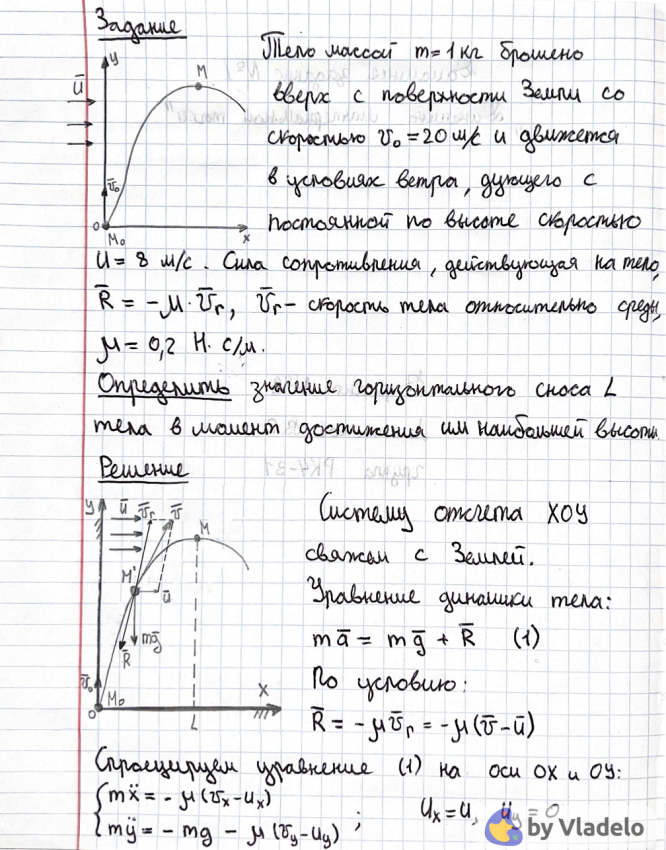 Задание
Тело массой m = 1 кг брошено
вверх с поверхности Земли со
скоростью v₀ = 20 м/с и движется
в условиях ветра, дующего с
постоянной по высоте скоростью
U = 8 м/с. Сила сопротивления, действующая на тело,
R̄ = -μ · v̄r, v̄r - скорость тела относительно среды,
μ = 0,2 Н. с/м.
Определить значение горизонтального сноса L
тела в момент достижения им наибольшей высоты.
y
ū
M
v̄₀
O
M₀
x
Решение
Систему отсчета XOY
свяжем с Землей.
Уравнение динамики тела:
mā = mḡ + R̄ (1)
По условию:
R̄ = -μv̄r = -μ(v̄-ū)
y
ū
v̄r
v̄
M
M'
ū
R̄
mḡ
v̄₀
M₀
O
L
X
Спроецируем уравнение (1) на оси OX и OY:
mẍ = -μ(vx-ux)
mÿ = -mg - μ(vy-uy) ;
Ux = u, uy = 0
by Vladelo